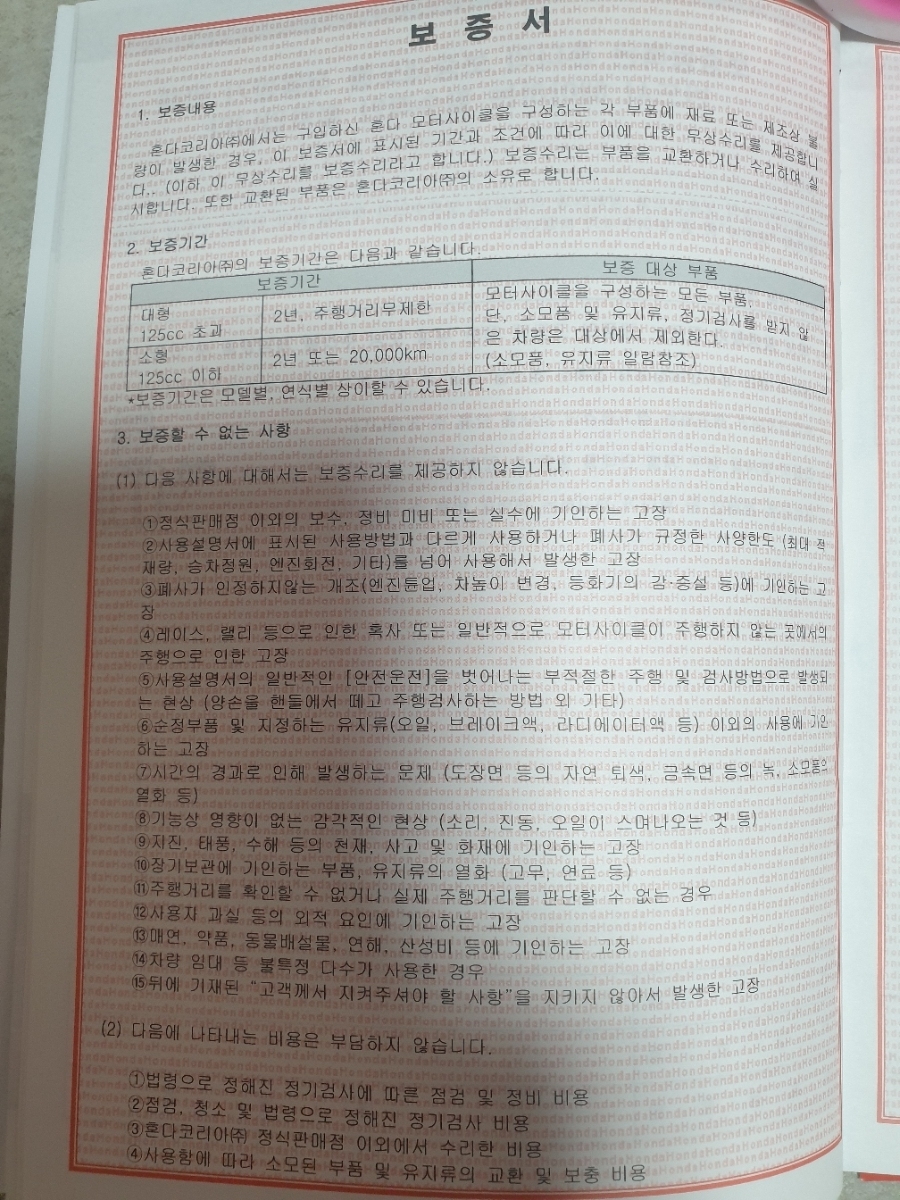 보 증 서
1. 보증내용
혼다코리아㈜에서는 구입하신 혼다 모터사이클을 구성하는 각 부품에 재료 또는 제조상 불
량이 발생한 경우, 이 보증서에 표시된 기간과 조건에 따라 이에 대한 무상수리를 제공합니
다.. (이하 이 무상수리를 보증수리라고 합니다.) 보증수리는 부품을 교환하거나 수리하여 실
시합니다. 또한 교환된 부품은 혼다코리아㈜의 소유로 합니다.
2. 보증기간
혼다코리아㈜의 보증기간은 다음과 같습니다.
보증기간 보증 대상 부품
대형
125cc 초과
2년, 주행거리무제한
소형
125cc 이하
2년 또는 20,000km
모터사이클을 구성하는 모든 부품.
단, 소모품 및 유지류, 정기검사를 받지 않
은 차량은 대상에서 제외한다.
(소모품, 유지류 일람참조)
*보증기간은 모델별, 연식별 상이할 수 있습니다.
3. 보증할 수 없는 사항
(1) 다음 사항에 대해서는 보증수리를 제공하지 않습니다.
①정식판매점 이외의 보수, 정비 미비 또는 실수에 기인하는 고장
②사용설명서에 표시된 사용방법과 다르게 사용하거나 폐사가 규정한 사양한도 (최대 적
재량, 승차정원, 엔진회전, 기타)를 넘어 사용해서 발생한 고장
③폐사가 인정하지않는 개조(엔진튠업, 차높이 변경, 등화기의 감·증설 등)에 기인하는 고
장
④레이스, 랠리 등으로 인한 혹사 또는 일반적으로 모터사이클이 주행하지 않는 곳에서의
주행으로 인한 고장
⑤사용설명서의 일반적인 [안전운전]을 벗어나는 부적절한 주행 및 검사방법으로 발생되
는 현상 (양손을 핸들에서 떼고 주행검사하는 방법 외 기타)
⑥순정부품 및 지정하는 유지류(오일, 브레이크액, 라디에이터액 등) 이외의 사용에 기인
하는 고장
⑦시간의 경과로 인해 발생하는 문제 (도장면 등의 자연 퇴색, 금속면 등의 녹, 소모품의
열화 등)
⑧기능상 영향이 없는 감각적인 현상 (소리, 진동, 오일이 스며나오는 것 등)
⑨지진, 태풍, 수해 등의 천재, 사고 및 화재에 기인하는 고장
⑩장기보관에 기인하는 부품, 유지류의 열화 (고무, 연료 등)
⑪주행거리를 확인할 수 없거나 실제 주행거리를 판단할 수 없는 경우
⑫사용자 과실 등의 외적 요인에 기인하는 고장
⑬매연, 약품, 동물배설물, 연해, 산성비 등에 기인하는 고장
⑭차량 임대 등 불특정 다수가 사용한 경우
⑮뒤에 기재된 “고객께서 지켜주셔야 할 사항”을 지키지 않아서 발생한 고장
(2) 다음에 나타내는 비용은 부담하지 않습니다.
①법령으로 정해진 정기검사에 따른 점검 및 정비 비용
②점검, 청소 및 법령으로 정해진 정기검사 비용
③혼다코리아㈜ 정식판매점 이외에서 수리한 비용
④사용함에 따라 소모된 부품 및 유지류의 교환 및 보충 비용